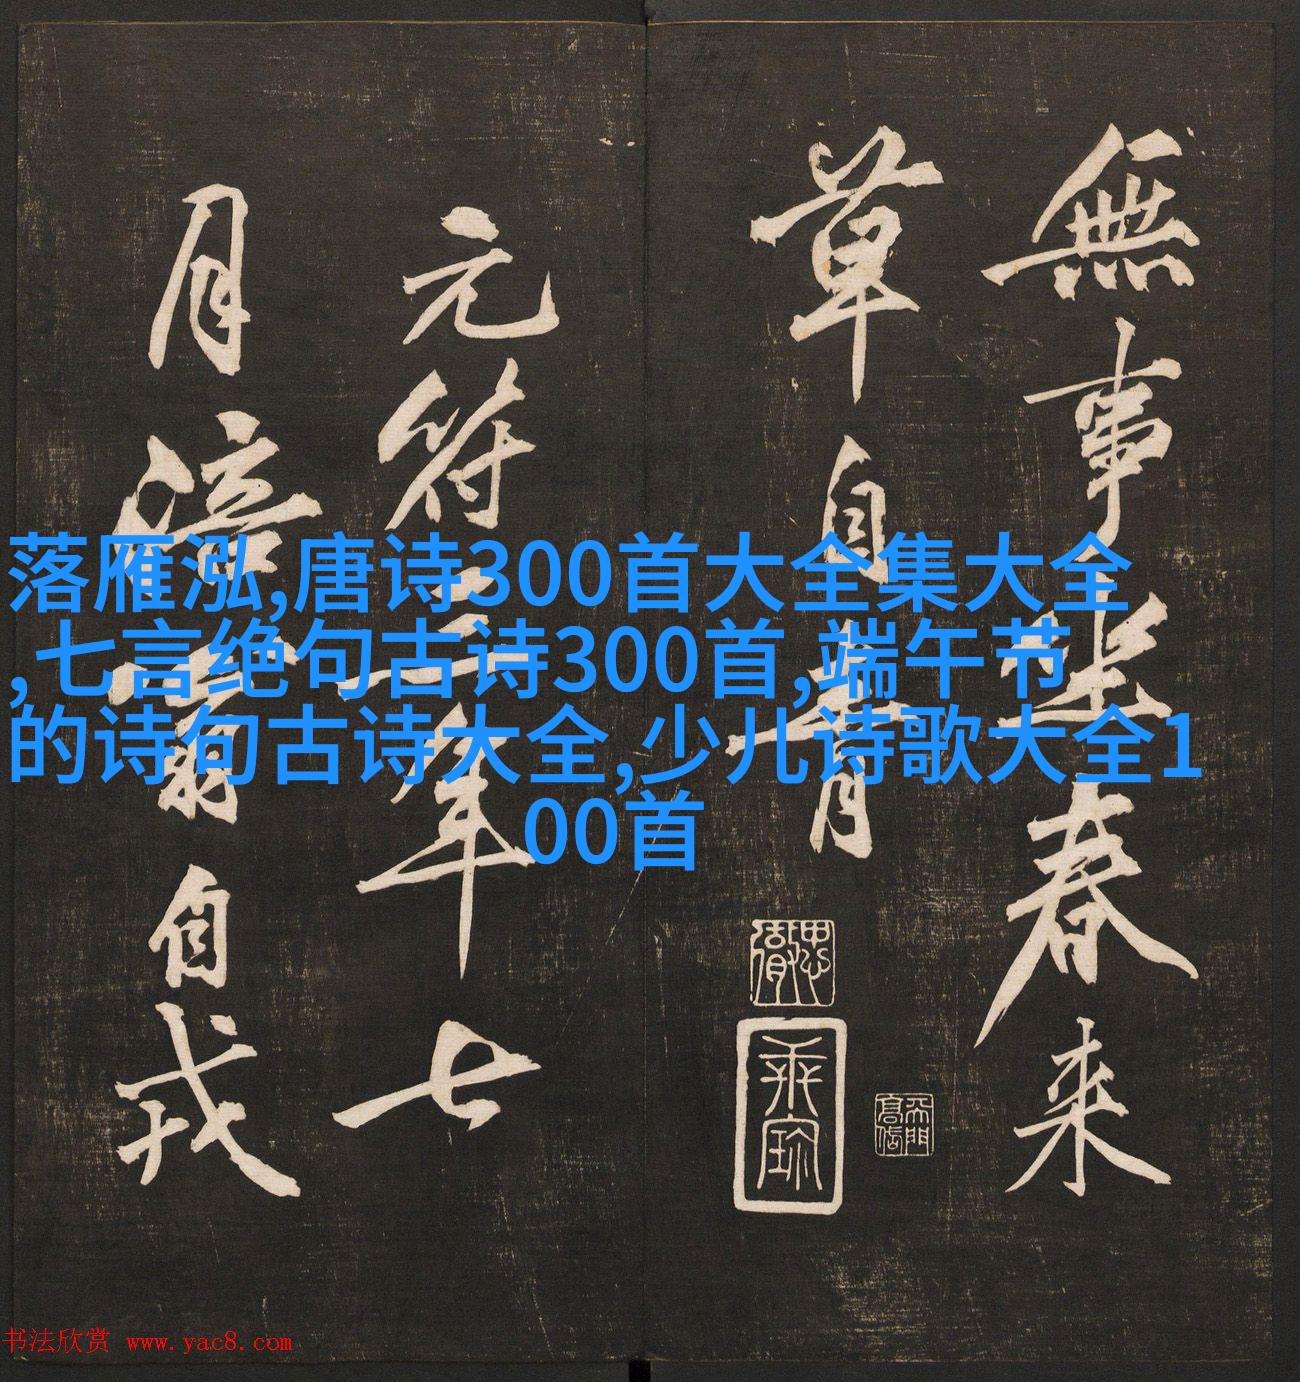 無事坐春来
草自青
元符三年七
月涪翁自戎
落雁泓,唐诗300首大全集大全
,七言绝句古诗300首,端午节
的诗句古诗大全,少儿诗歌大全1
00首
书法欣赏 www.yac8.com